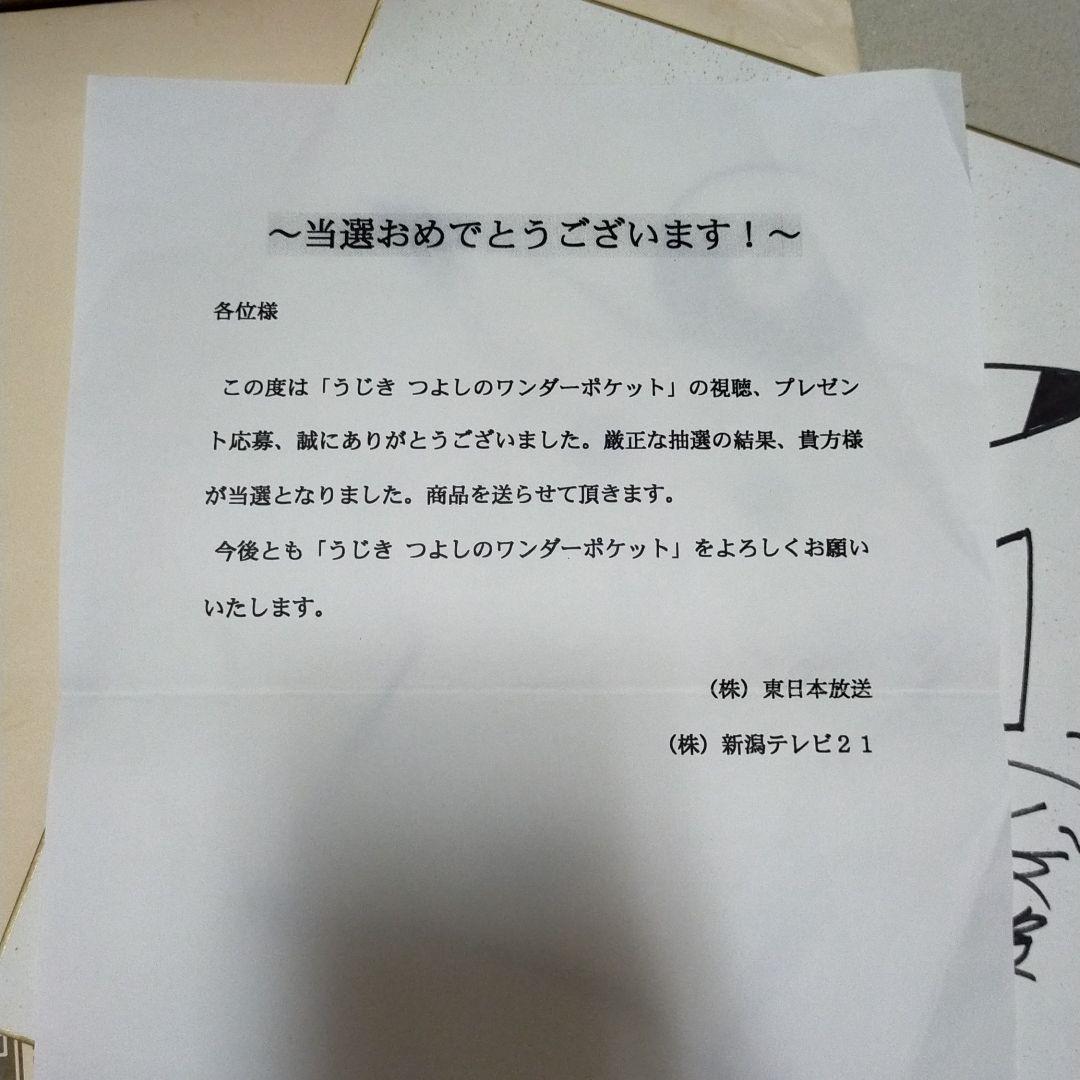 ～当選おめでとうございます！～
各位様
この度は「うじき つよしのワンダーポケット」の視聴、プレゼン
ト応募、誠にありがとうございました。厳正な抽選の結果、貴方様
が当選となりました。商品を送らせて頂きます。
今後とも「うじき つよしのワンダーポケット」をよろしくお願い
いたします。
（株）東日本放送
（株）新潟テレビ２１